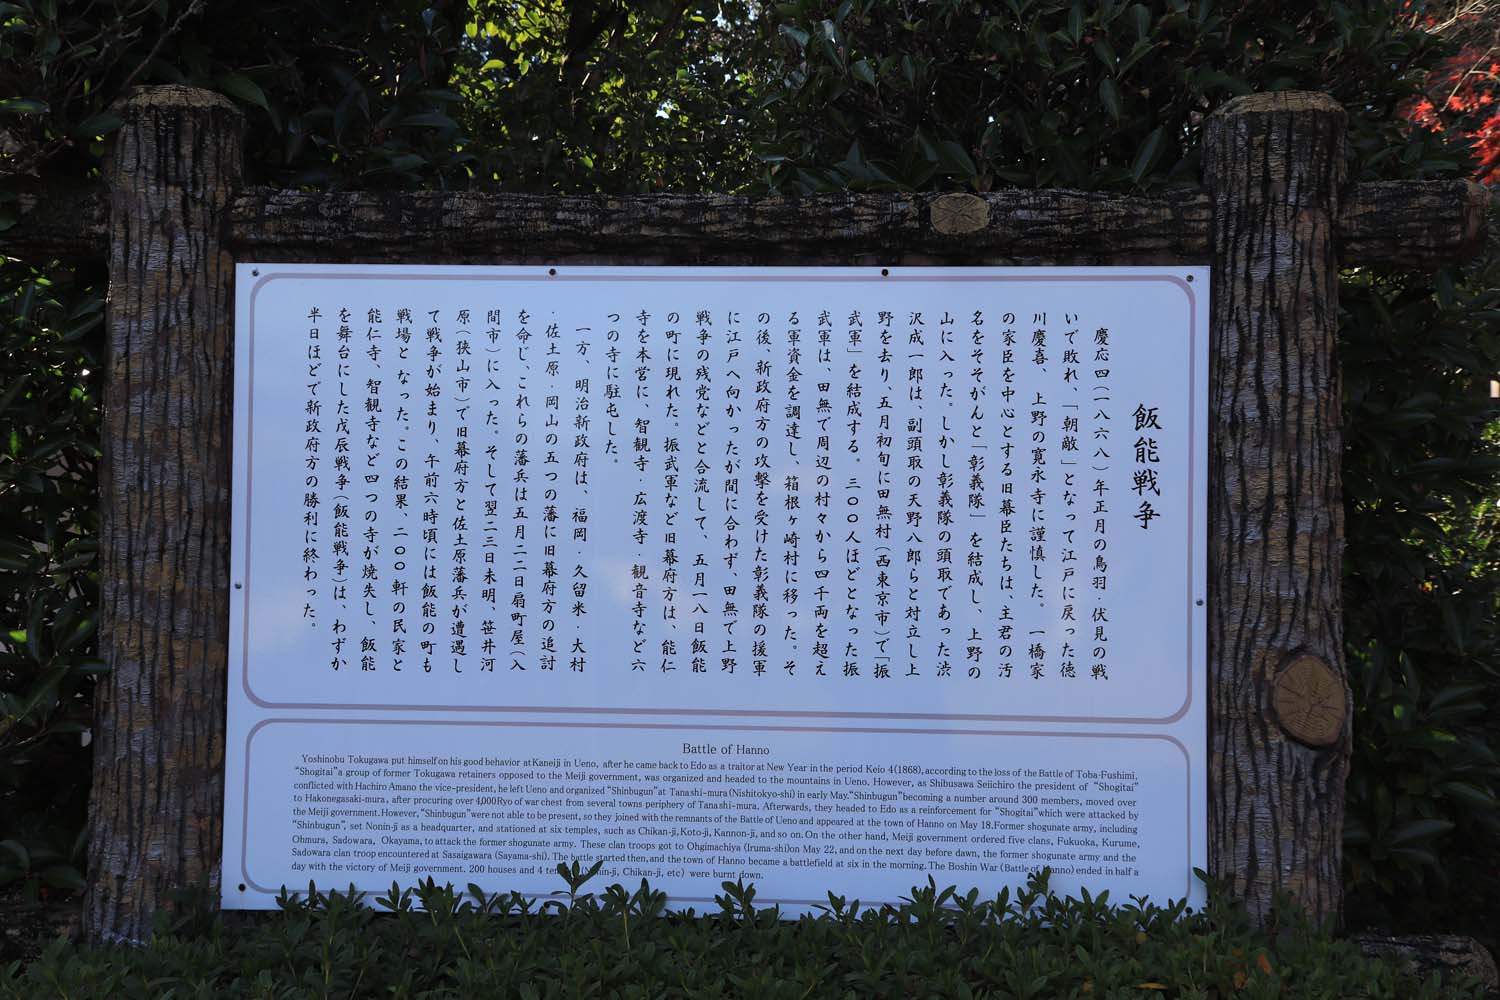 飯能戦争
慶応四(一八六八)年正月の鳥羽・伏見の戦
いで敗れ、「朝敵」となって江戸に戻った徳
川慶喜、上野の寛永寺に謹慎した。一橋家
の家臣を中心とする旧幕臣たちは、主君の汚
名をそそがんと「彰義隊」を結成し、上野の
山に入った。しかし彰義隊の頭取であった渋
沢成一郎は、副頭取の天野八郎らと対立し上
野を去り、五月初旬に田無村(西東京市)で「振
武軍」を結成する。三〇〇人ほどとなった振
武軍は、田無で周辺の村々から四千両を超え
る軍資金を調達し、箱根ヶ崎村に移った。そ
の後、新政府方の攻撃を受けた彰義隊の援軍
に江戸へ向かったが間に合わず、田無で上野
戦争の残党などと合流して、五月一八日飯能
の町に現れた。振武軍など旧幕府方は、能仁
寺を本営に、智観寺・広渡寺・観音寺など六
つの寺に駐屯した。
一方、明治新政府は、福岡・久留米・大村
・佐土原・岡山の五つの藩に旧幕府方の追討
を命じ、これらの藩兵は五月二二日扇町屋(入
間市)に入った。そして翌二三日未明、笹井河
原(狭山市)で旧幕府方と佐土原藩兵が遭遇し
て戦争が始まり、午前六時頃には飯能の町も
戦場となった。この結果、二〇〇軒の民家と
能仁寺、智観寺など四つの寺が焼失し、飯能
を舞台にした戊辰戦争(飯能戦争)は、わずか
半日ほどで新政府方の勝利に終わった。
Battle of Hanno
Yoshinobu Tokugawa put himself on his good behavior at Kaneiji in Ueno, after he came back to Edo as a traitor at New Year in the period Keio 4(1868), according to the loss of the Battle of Toba-Fushimi,
"Shogitai" a group of former Tokugawa retainers opposed to the Meiji government, was organized and headed to the mountains in Ueno. However, as Shibusawa Seiichiro the president of "Shogitai"
conflicted with Hachiro Amano the vice-president, he left Ueno and organized "Shinbugun" at Tanashi-mura (Nishitokyo-shi) in early May. "Shinbugun" becoming a number around 300 members, moved over
to Hakonegasaki-mura, after procuring over 4,000Ryo of war chest from several towns periphery of Tanashi-mura. Afterwards, they headed to Edo as a reinforcement for "Shogitai" which were attacked by
the Meiji government. However, "Shinbugun" were not able to be present, so they joined with the remnants of the Battle of Ueno and appeared at the town of Hanno on May 18. Former shogunate army, including
"Shinbugun", set Nonin-ji as a headquarter, and stationed at six temples, such as Chikan-ji, Koto-ji, Kannon-ji, and so on. On the other hand, Meiji government ordered five clans, Fukuoka, Kurume,
Ohmura, Sadowara, Okayama, to attack the former shogunate army. These clan troops got to Ohgimachiya (Iruma-shi)on May 22, and on the next day before dawn, the former shogunate army and the
Sadowara clan troop encountered at Sasaigawara (Sayama-shi). The battle started then, and the town of Hanno became a battlefield at six in the morning. The Boshin War (Battle of Hanno) ended in half a
day with the victory of Meiji government. 200 houses and 4 (Nonin-ji, Chikan-ji, etc) were burnt down.